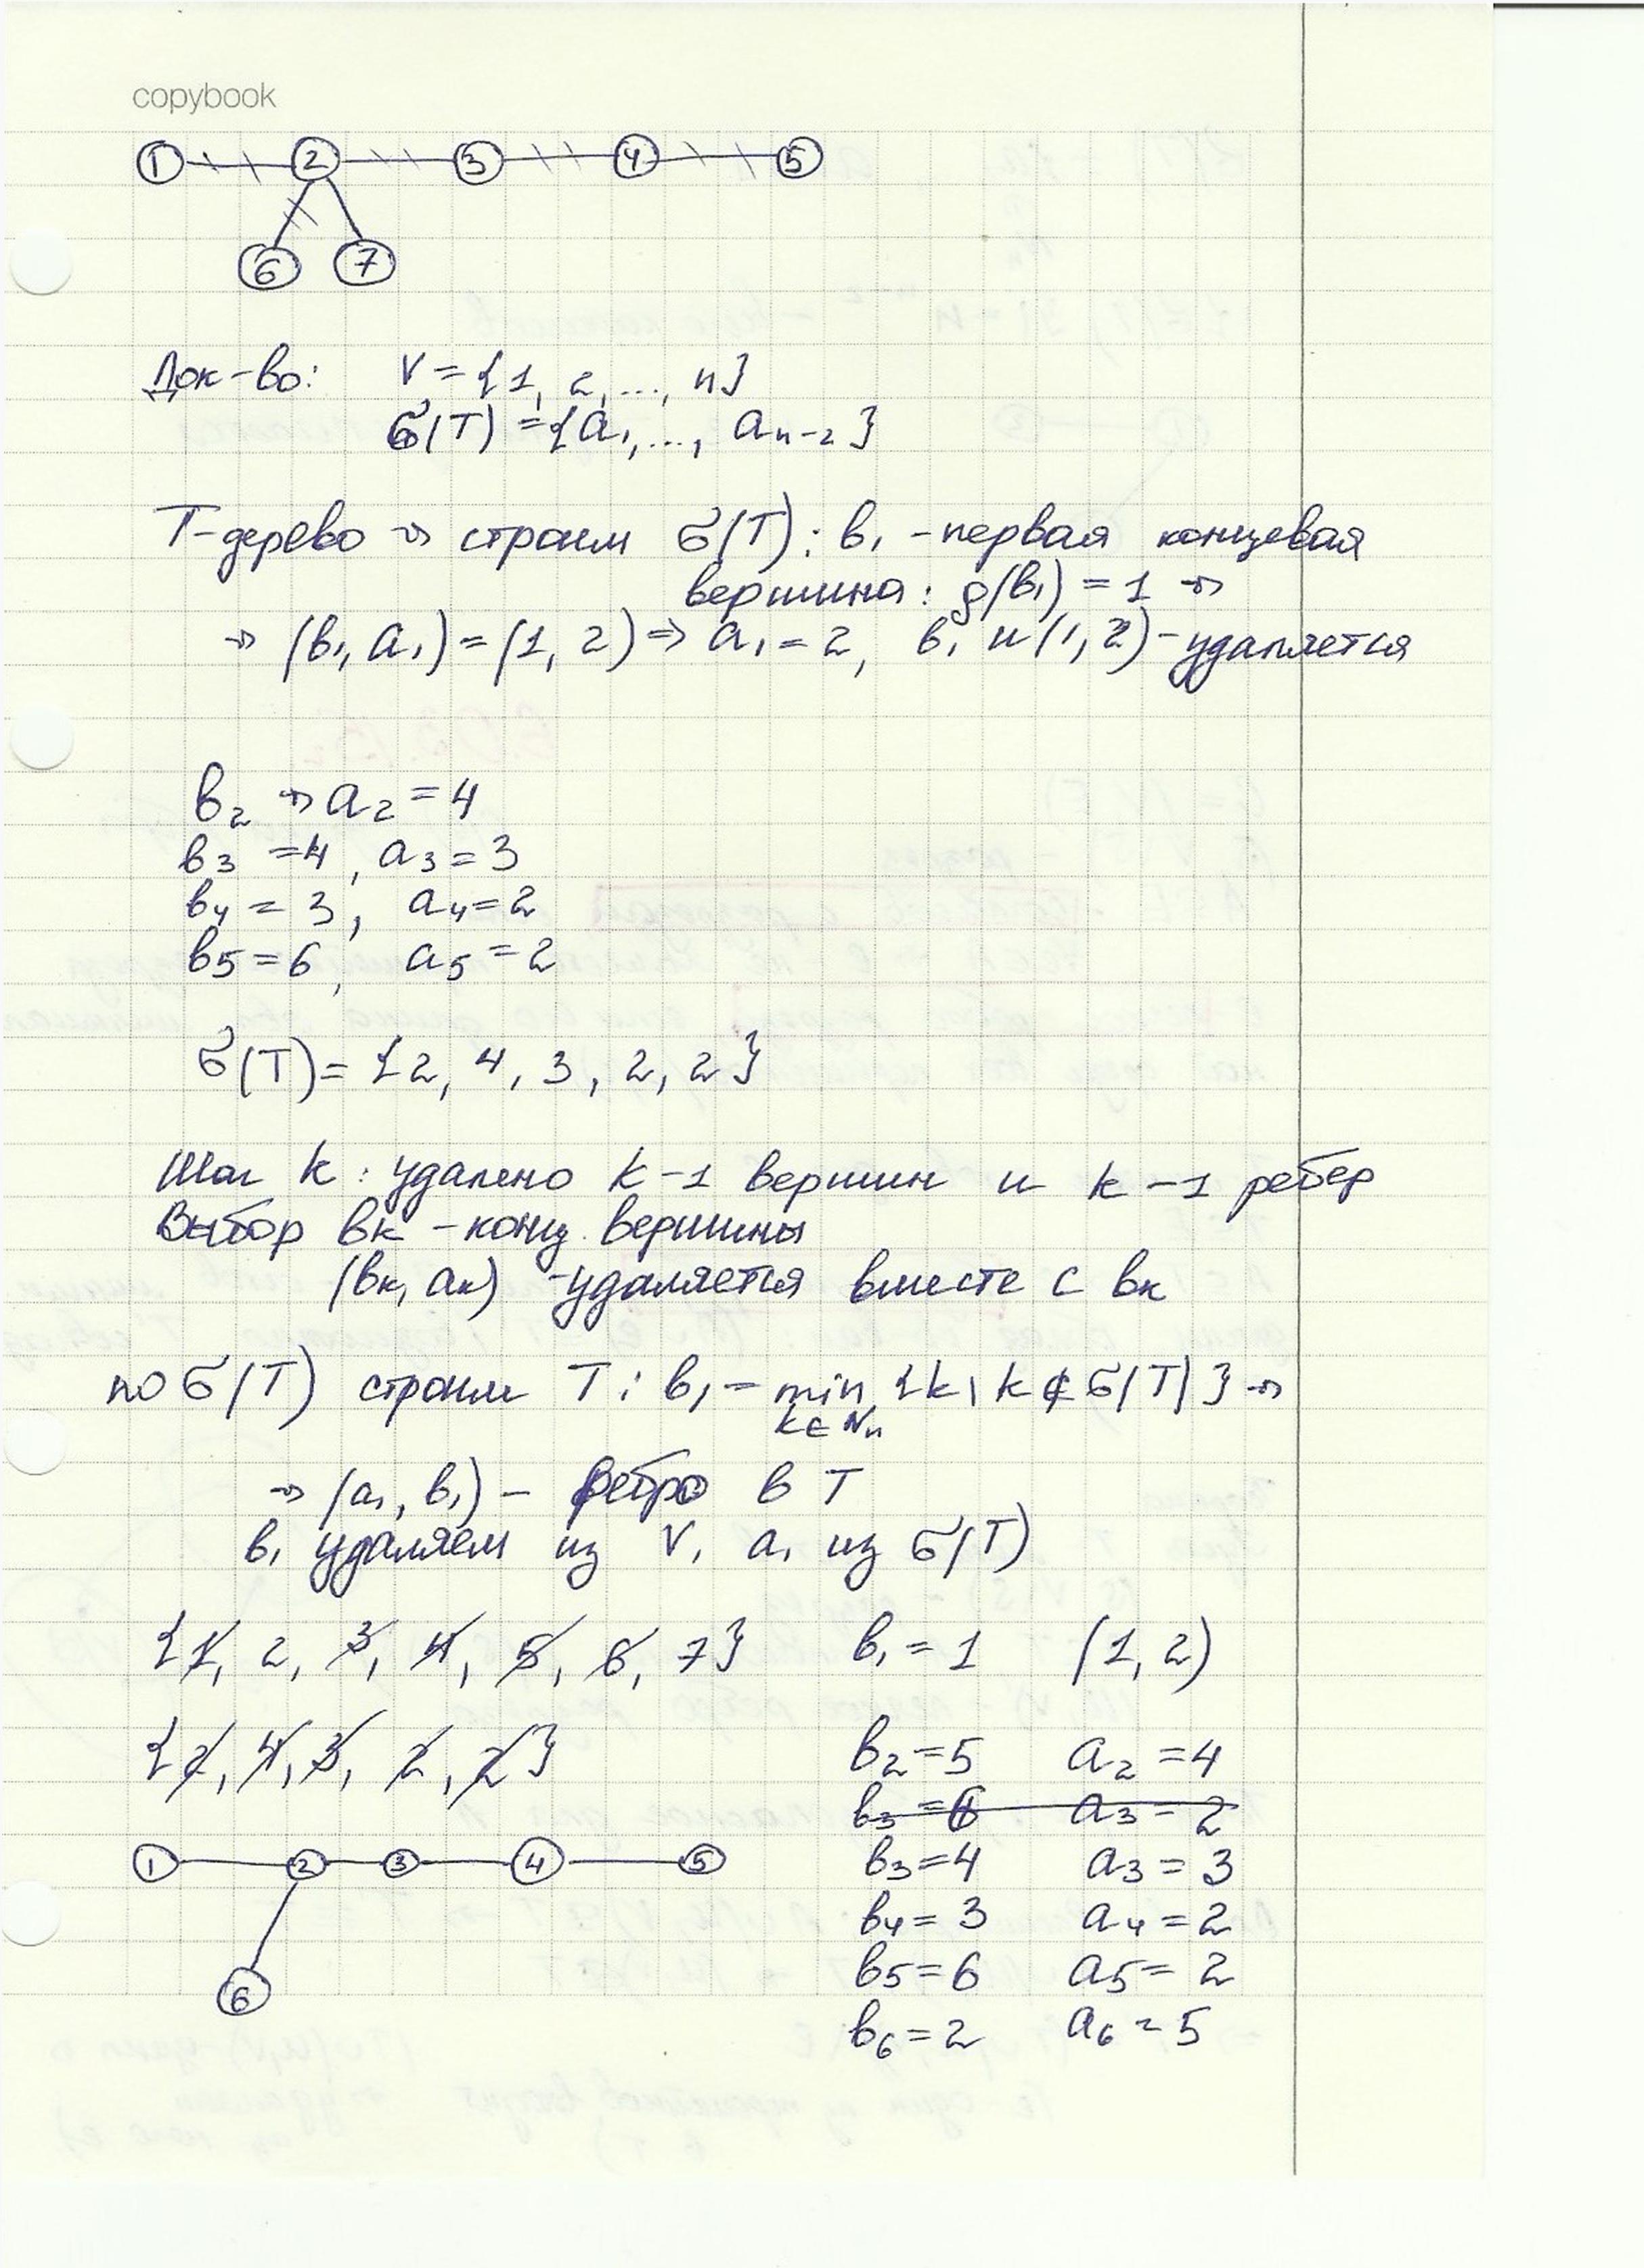 copybook
1 2 3 4 5
6 7
Док-во: V = {1, 2, ..., n}
σ(T) = {a₁, ..., aₙ₋₂}
T-дерево ⇝ строим σ(T): b₁ - первая концевая
вершина: ρ(b₁) = 1 ⇝
⇝ (b₁, a₁) = (1, 2) ⇒ a₁ = 2, b₁ и (1, 2) - удаляется
b₂ ⇝ a₂ = 4
b₃ = 4, a₃ = 3
b₄ = 3, a₄ = 2
b₅ = 6, a₅ = 2
σ(T) = {2, 4, 3, 2, 2}
Шаг k: удалено k-1 вершин и k-1 ребер
Выбор bк - конц. вершины
(bк, aк) - удаляется вместе с bк
по σ(T) строим T: b₁ = min {k | k ∉ σ(T)} ⇝
k ∈ Nₙ
⇝ (a₁, b₁) - ребро в T
b₁ удаляем из V, a₁ из σ(T)
{1, 2, 3, 4, 5, 6, 7} b₁ = 1 (1, 2)
{2, 4, 3, 2, 2} b₂ = 5 a₂ = 4
b₃ = 6 a₃ = 2
b₃ = 4 a₃ = 3
1 2 3 4 5
b₄ = 3 a₄ = 2
b₅ = 6 a₅ = 2
6
b₆ = 2 a₆ = 5